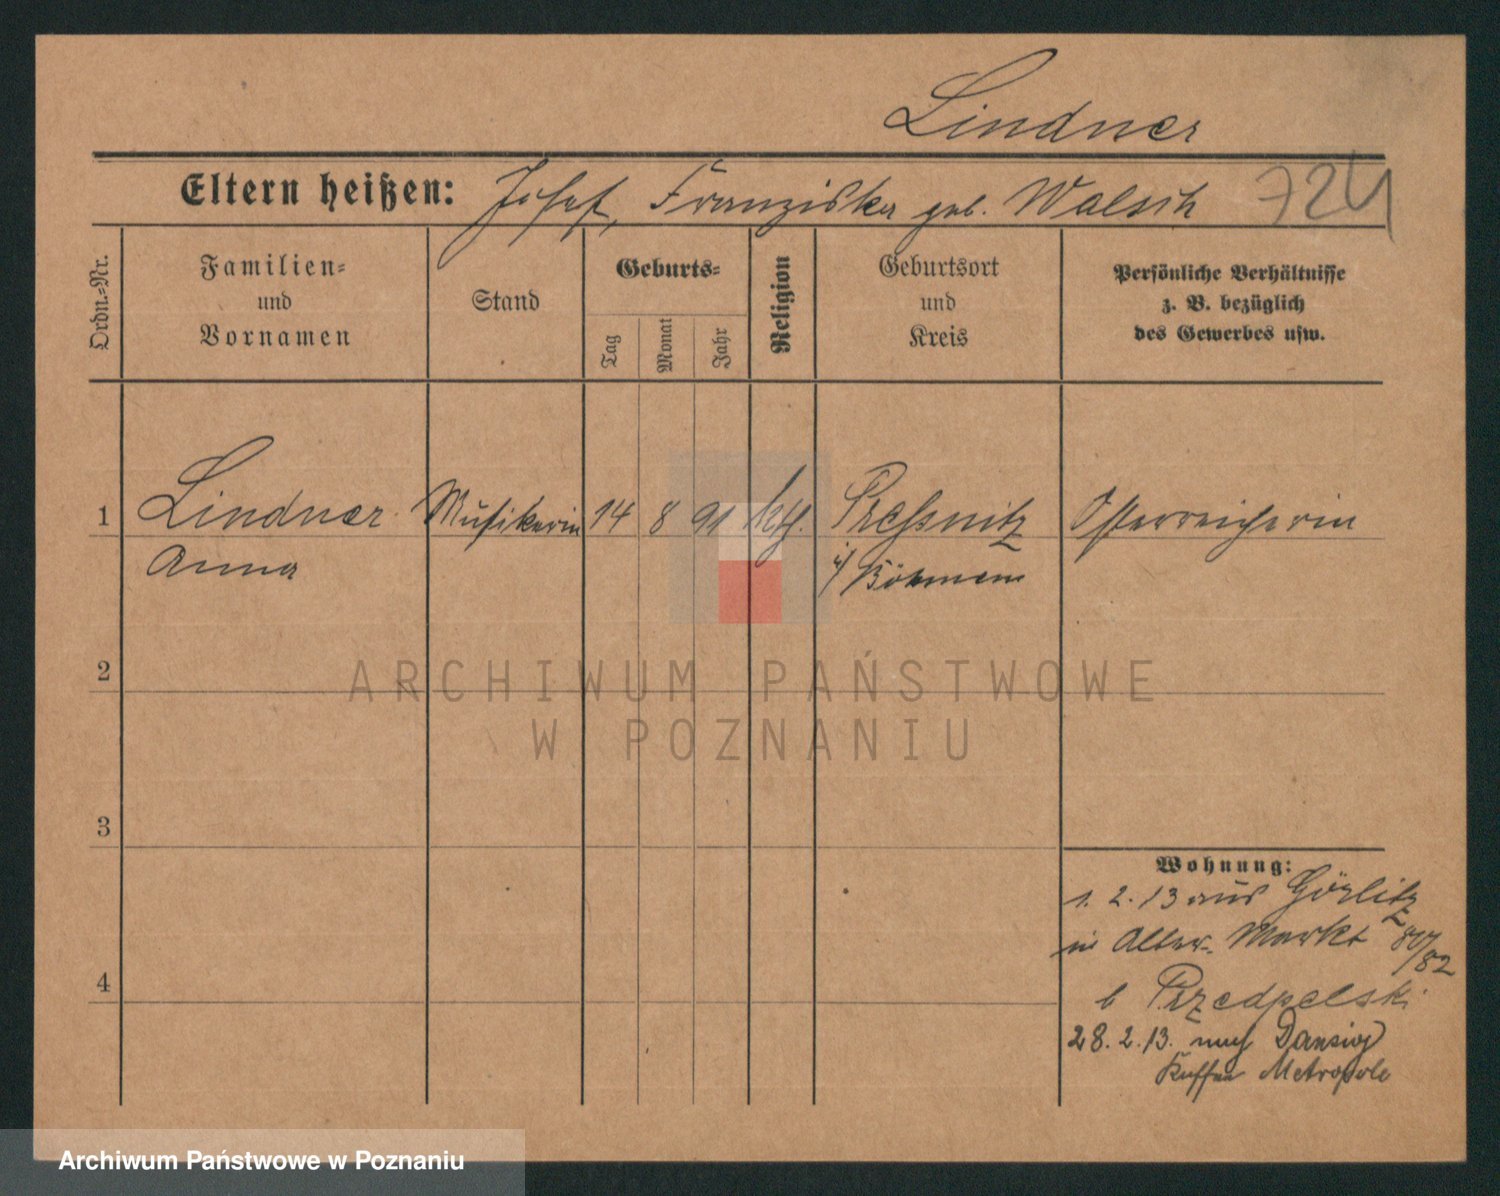 Lindner
Eltern heißen: Josef, Franziska geb. Walsch 724
Ordn.=Nr.
Familien=
und
Vornamen
Stand
Geburts=
Tag
Monat
Jahr
Religion
Geburtsort
und
Kreis
Persönliche Verhältnisse
z. B. bezüglich
des Gewerbes usw.
1 Lindner Musikerin 14 8 91 kth. Pressnitz Österreicherin
Anna i/ Böhmen
2
ARCHIWUM PAŃSTWOWE
W POZNANIU
3
Wohnung:
1. 2. 13 aus Görlitz
in Alter Markt 80/82
4
b Przedpelski
28. 2. 13. nach Danzig
Kaffee Metropole
Archiwum Państwowe w Poznaniu